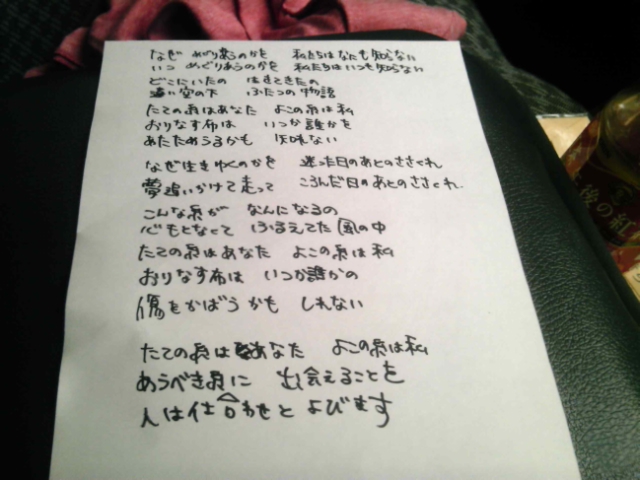 なぜ めぐり逢うのかを 私たちは なにも知らない
いつ めぐりあうのかを 私たちは いつも知らない
どこにいたの 生きてきたの
遠い空の下 ふたつの物語
たての糸はあなた よこの糸は私
おりなす布は いつか誰かを
あたためうるかも 知れない
なぜ生きゆくのかを 迷った日のあとのささくれ
夢追いかけて走って ころんだ日のあとのささくれ
こんな糸が なんになるの
心もとなくて ふるえてた風の中
たての糸はあなた よこの糸は私
おりなす布は いつか誰かの
傷をかばうかも しれない
たての糸はあなた よこの糸は私
あうべき糸に 出会えることを
人は仕合わせと よびます
後の紅